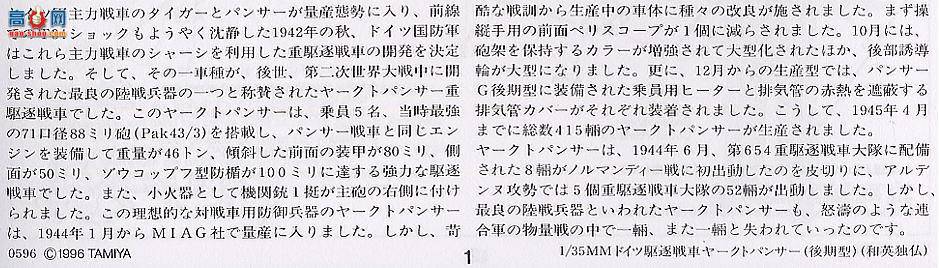 主力戦車のタイガーとパンサーが量産態勢に入り、前線
ショックもようやく沈静した1942年の秋、ドイツ国防軍
はこれら主力戦車のシャーシを利用した重駆逐戦車の開発を決定
しました。そして、その一車種が、後世、第二次世界大戦中に開
発された最良の陸戦兵器の一つと称賛されたヤークトパンサー重
駆逐戦車でした。このヤークトパンサーは、乗員5名、当時最強
の71口径88ミリ砲(Pak43/3)を搭載し、パンサー戦車と同じエン
ジンを装備して重量が46トン、傾斜した前面の装甲が80ミリ、側
面が50ミリ、ゾウコップフ型防楯が100ミリに達する強力な駆逐
戦車でした。また、小火器として機関銃1挺が主砲の右側に付け
られました。この理想的な対戦車用防御兵器のヤークトパンサー
は、1944年1月からMIAG社で量産に入りました。しかし、苛
酷な戦訓から生産中の車体に種々の改良が施されました。まず操
縦手用の前面ペリスコープが1個に減らされました。10月には、
砲架を保持するカラーが増強されて大型化されたほか、後部誘導
輪が大型になりました。更に、12月からの生産型では、パンサー
G後期型に装備された乗員用ヒーターと排気管の赤熱を遮蔽する
排気管カバーがそれぞれ装着されました。こうして、1945年4月
までに総数415輛のヤークトパンサーが生産されました。
ヤークトパンサーは、1944年6月、第654重駆逐戦車大隊に配備
された8輛がノルマンディー戦に初出動したのを皮切りに、アルデ
ンヌ攻勢では5個重駆逐戦車大隊の52輛が出動しました。しかし、
最良の陸戦兵器といわれたヤークトパンサーも、怒濤のような連
合軍の物量戦の中で一輛、また一輛と失われていったのです。
0596 ©1996 TAMIYA
1
1/35MMドイツ駆逐戦車ヤークトパンサー(後期型)(和英独仏)
高岛网